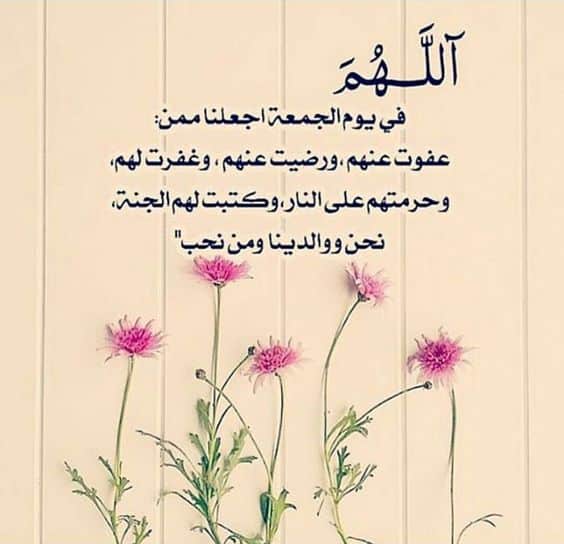 آللَّـهُمَ
في يوم الجمعة اجعلنا ممن:
عفوت عنهم، ورضيت عنهم، وغفرت لهم،
وحرمتهم على النار، وكتبت لهم الجنة،
نحن ووالدينا ومن نحب"